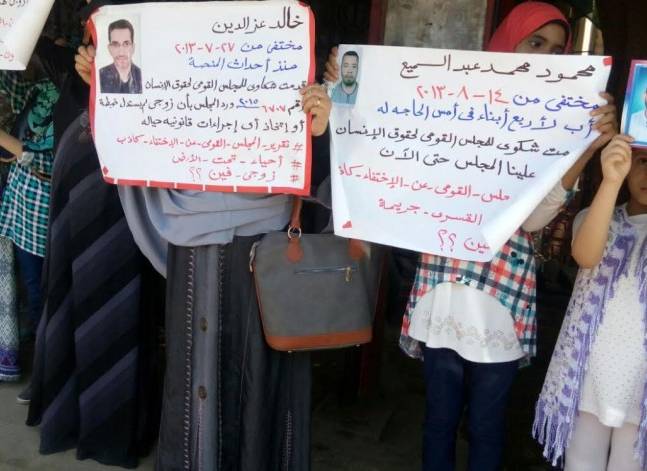 خالد عز الدين
مختفي من ٢٧-٧-٢٠١٣
منذ أحداث المنصة
قدمت شكاوى للمجلس القومى لحقوق الإنسان
رقم ٦٧٠٧ ٢٠١٥ ورد المجلس بأن زوجى لم يستدل
أو إتخاذ أى إجراءات قانونية حياله
# تقرير-المجلس-القومى-عن-الإختفاء-كاذب
# أحياء-تحت-الأرض
# زوجى-فين ؟؟
محمود محمد عبد السميع
مختفي من ١٤-٨-٢٠١٣
أب لأربع أبناء فى أمس الحاجه له
مت شكوى للمجلس القومى لحقوق الإنسان
علينا المجلس حتى الآن
جلس-القومى-عن-الإختفاء-كاذ
القسرى-جريمة
ين ؟؟